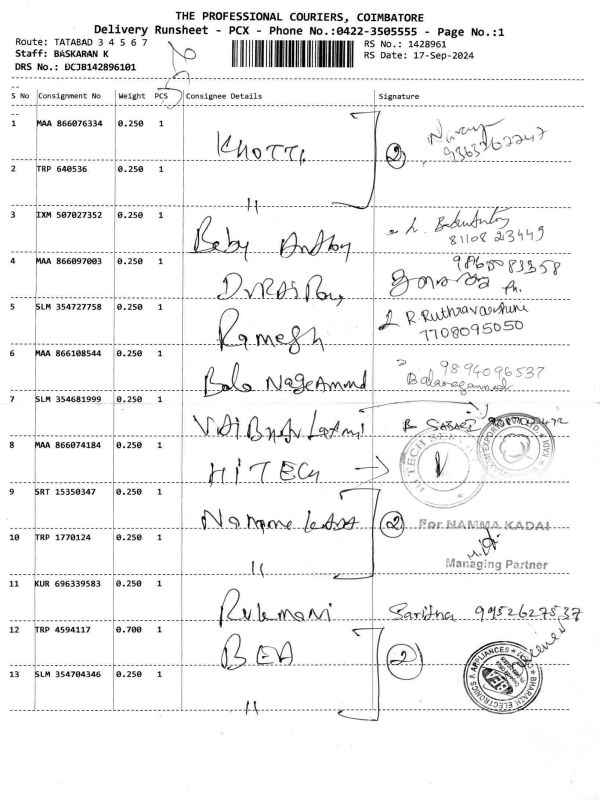 THE PROFESSIONAL COURIERS, COIMBATORE
Delivery Runsheet - PCX - Phone No.:0422-3505555 - Page No.:1
Route: TATABAD 3 4 5 6 7
RS No.: 1428961
Staff: BASKARAN K
RS Date: 17-Sep-2024
DRS No.: DCJB142896101
S No Consignment No Weight PCS Consignee Details Signature
1 MAA 866076334 0.250 1 KHOTTI 2
2 TRP 640536 0.250 1 "
3 IXM 507027352 0.250 1 Baby Anthony 81108 23449
4 MAA 866097003 0.250 1 Ph.
5 SLM 354727758 0.250 1 Ramesh R. 7708095050
6 MAA 866108544 0.250 1 Bala 9894096537
7 SLM 354681999 0.250 1
8 MAA 866074184 0.250 1 HITECH
9 SRT 15350347 0.250 1 2 For NAMMA KADAI
10 TRP 1770124 0.250 1 " Managing Partner
11 KUR 696339583 0.250 1 Rukmani Saritha 9952627537
12 TRP 4594117 0.700 1 BEA 2
13 SLM 354704346 0.250 1 "
BHARATH ELECTRONICS & APPLIANCES